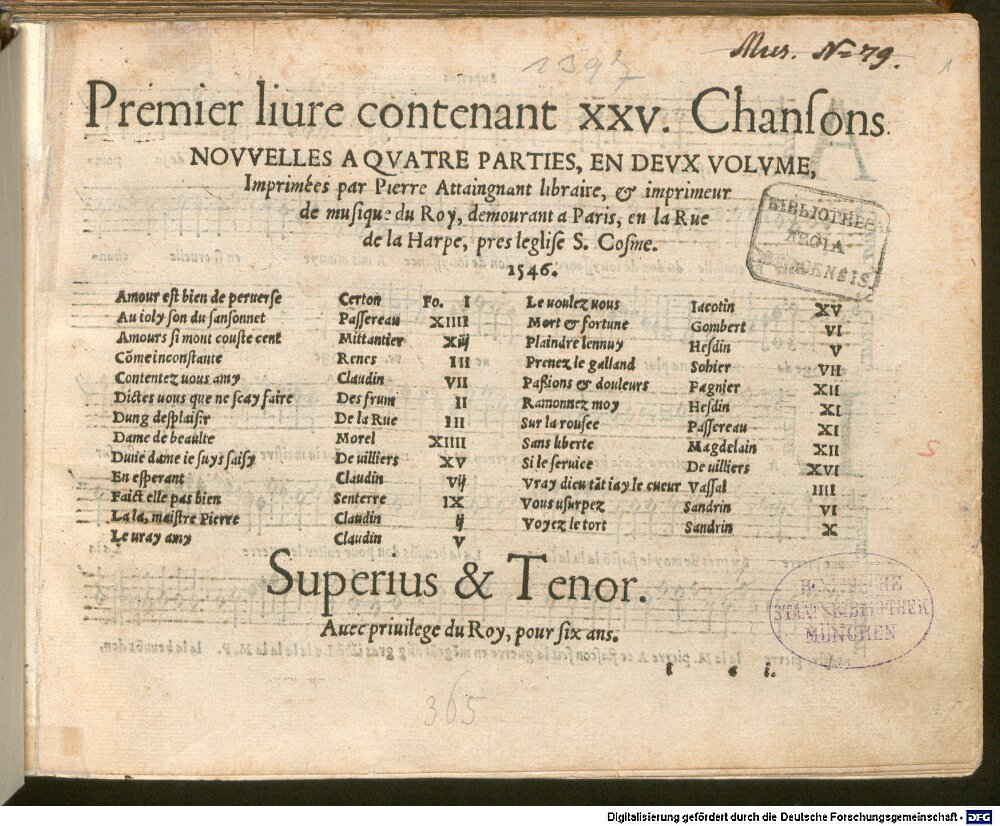 Mus. N= 79.
1
1397
Premier liure contenant XXV. Chanſons
NOVVELLES A QVATRE PARTIES, EN DEVX VOLVME,
Imprimées par Pierre Attaingnant libraire, & imprimeur
de musique du Roy, demourant a Paris, en la Rue
de la Harpe, pres leglise S. Coſme.
1546.
Amour eſt bien de peruerſe Certon Fo. I
Au ioly ſon du ſanſonnet Paſſereau XIIII
Amours ſi mont couſte cent Mittantier Xij
Cõme inconſtante Renes III
Contentez uous amy Claudin VII
Dictes uous que ne ſcay faire Des fruni II
Dung deſplaiſir De la Rue III
Dame de beaulte Morel XIIII
Dune dame ie ſuys ſaiſy De uilliers XV
En eſperant Claudin Vij
Faict elle pas bien Senterre IX
La la, maiſtre Pierre Claudin ij
Le uray amy Claudin V
Le uoulez uous Iacotin XV
Mort & fortune Gombert VI
Plaindre lennuy Heſdin V
Prenez le galland Sohier VII
Paßions & douleurs Pagnier XII
Ramonnez moy Heſdin XI
Sur la rouſee Paſſereau XI
Sans liberte Magdelain XII
Si le ſeruice De uilliers XVI
Vray dieu tãt iay le cueur Vaſſal IIII
Vous uſurpez Sandrin VI
Voyez le tort Sandrin X
BIBLIOTHEC
REGIA
MONACENSIS.
5
Superius & Tenor.
Auec priuilege du Roy, pour ſix ans.
BAYERISCHE
STAATSBIBLIOTHEK
MÜNCHEN
i.
365
Digitalisierung gefördert durch die Deutsche Forschungsgemeinschaft - DFG